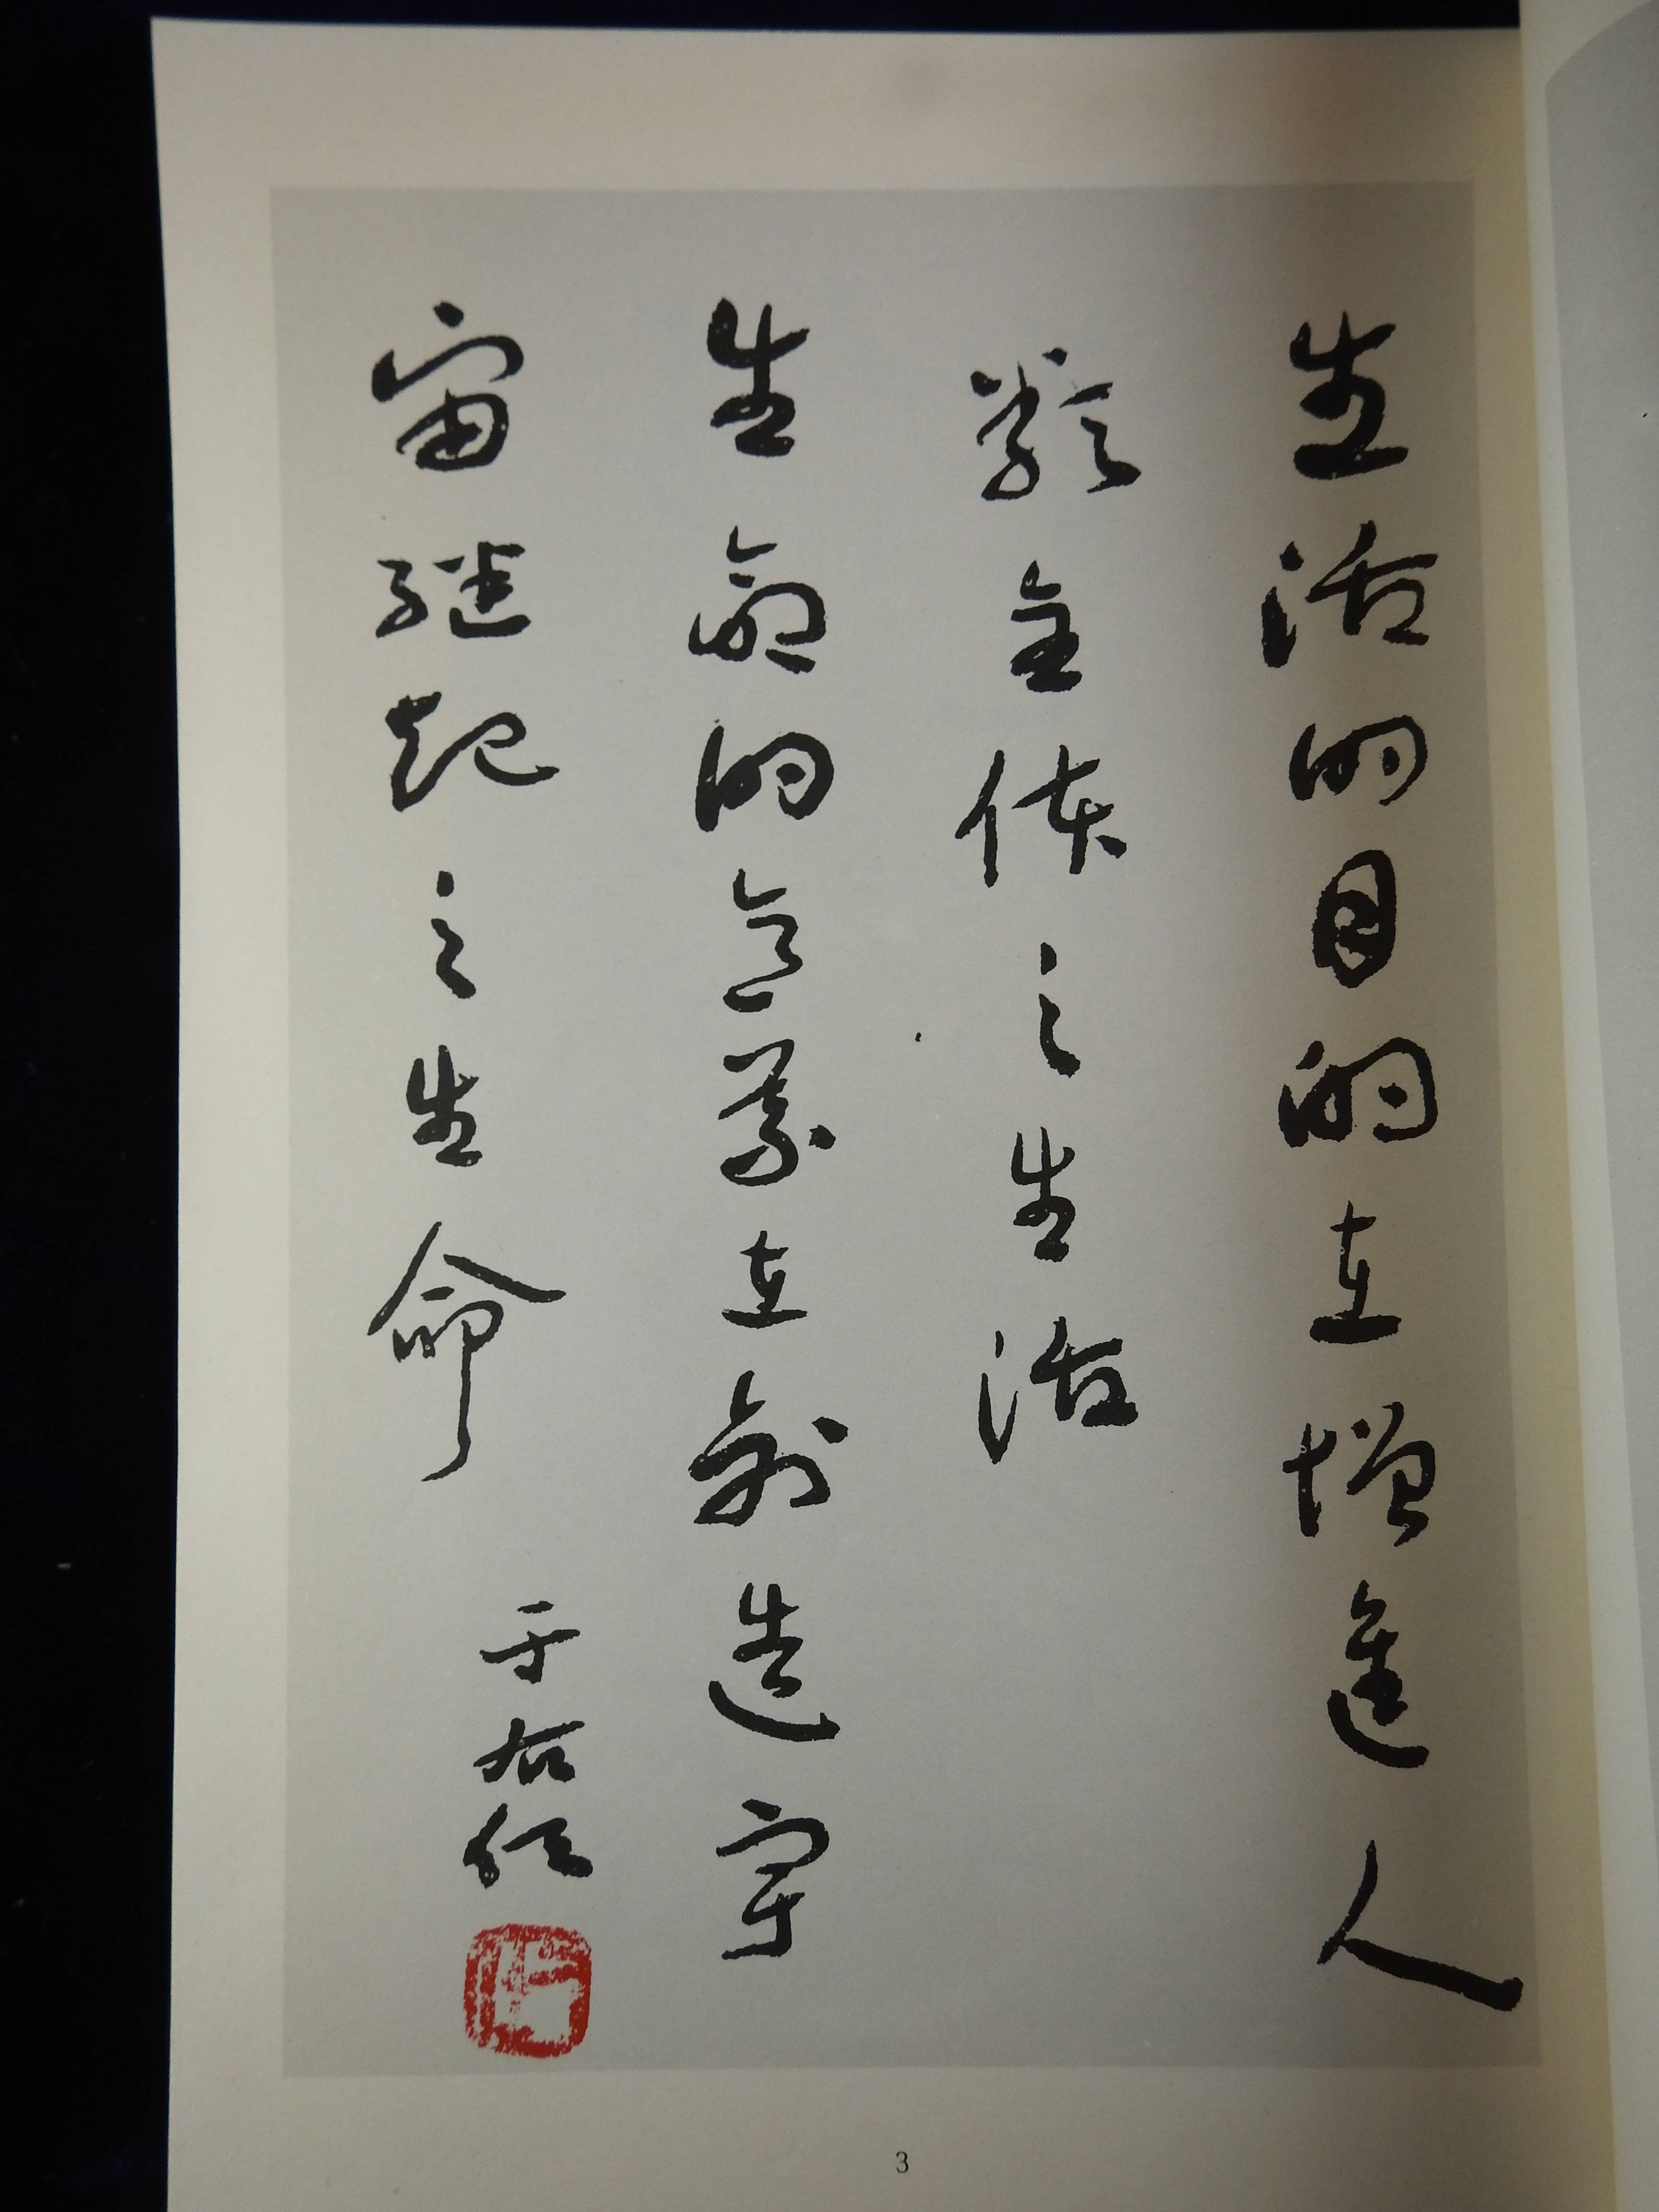 生活的目的在增進人
類全体之生活
生命的意義在創造宇
宙繼起之生命
于右任
3